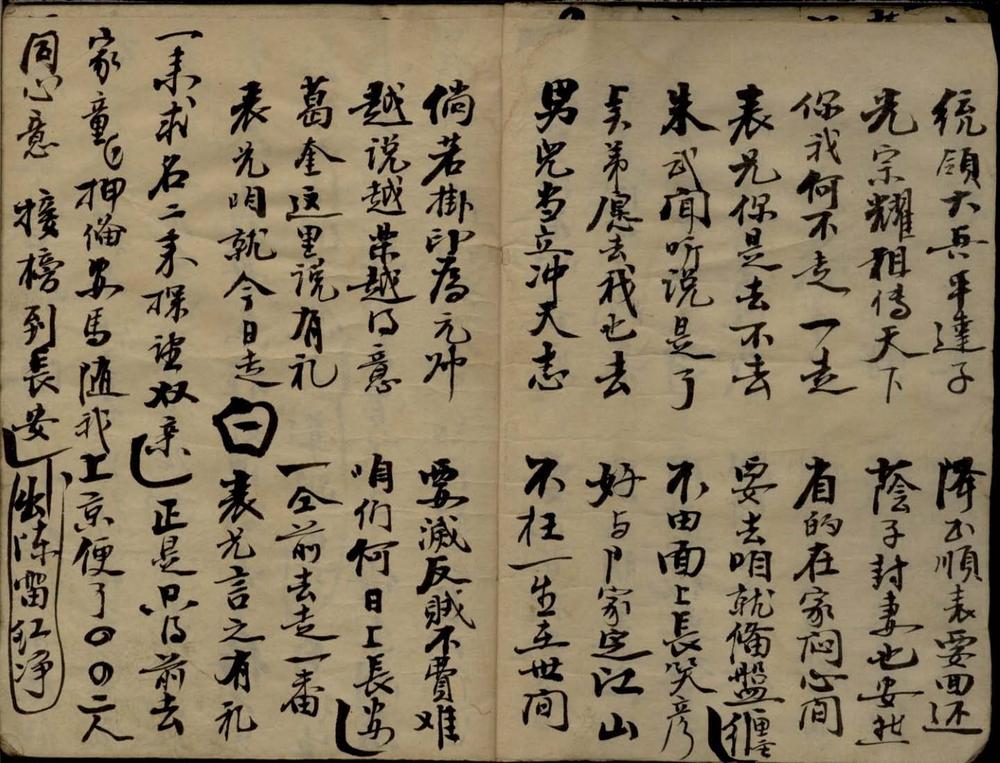 統領大兵平達子 降書順表要回还
光宗耀祖傳天下 蔭子封妻也安然
你我何不走一走 省的在家闷心间
表兄你是去不去 要去咱就俻盤纏
朱武闻听说是了 不由面上長笑彦
贤弟愿去我也去 好与卩家定江山
男兒当立冲天志 不枉一生在世间
倘若掛印為元帅 要滅反贼不費难
越说越荣越得意 咱们何日上長安
葛奎这里说有礼 一仝前去走一番
表兄咱就今日走 曰 表兄言之有礼
一来求名二来探望双亲 正是只得前去
家童们押俻安馬随我上京便了 二人
同心意 接榜到長安 出陈雷红净